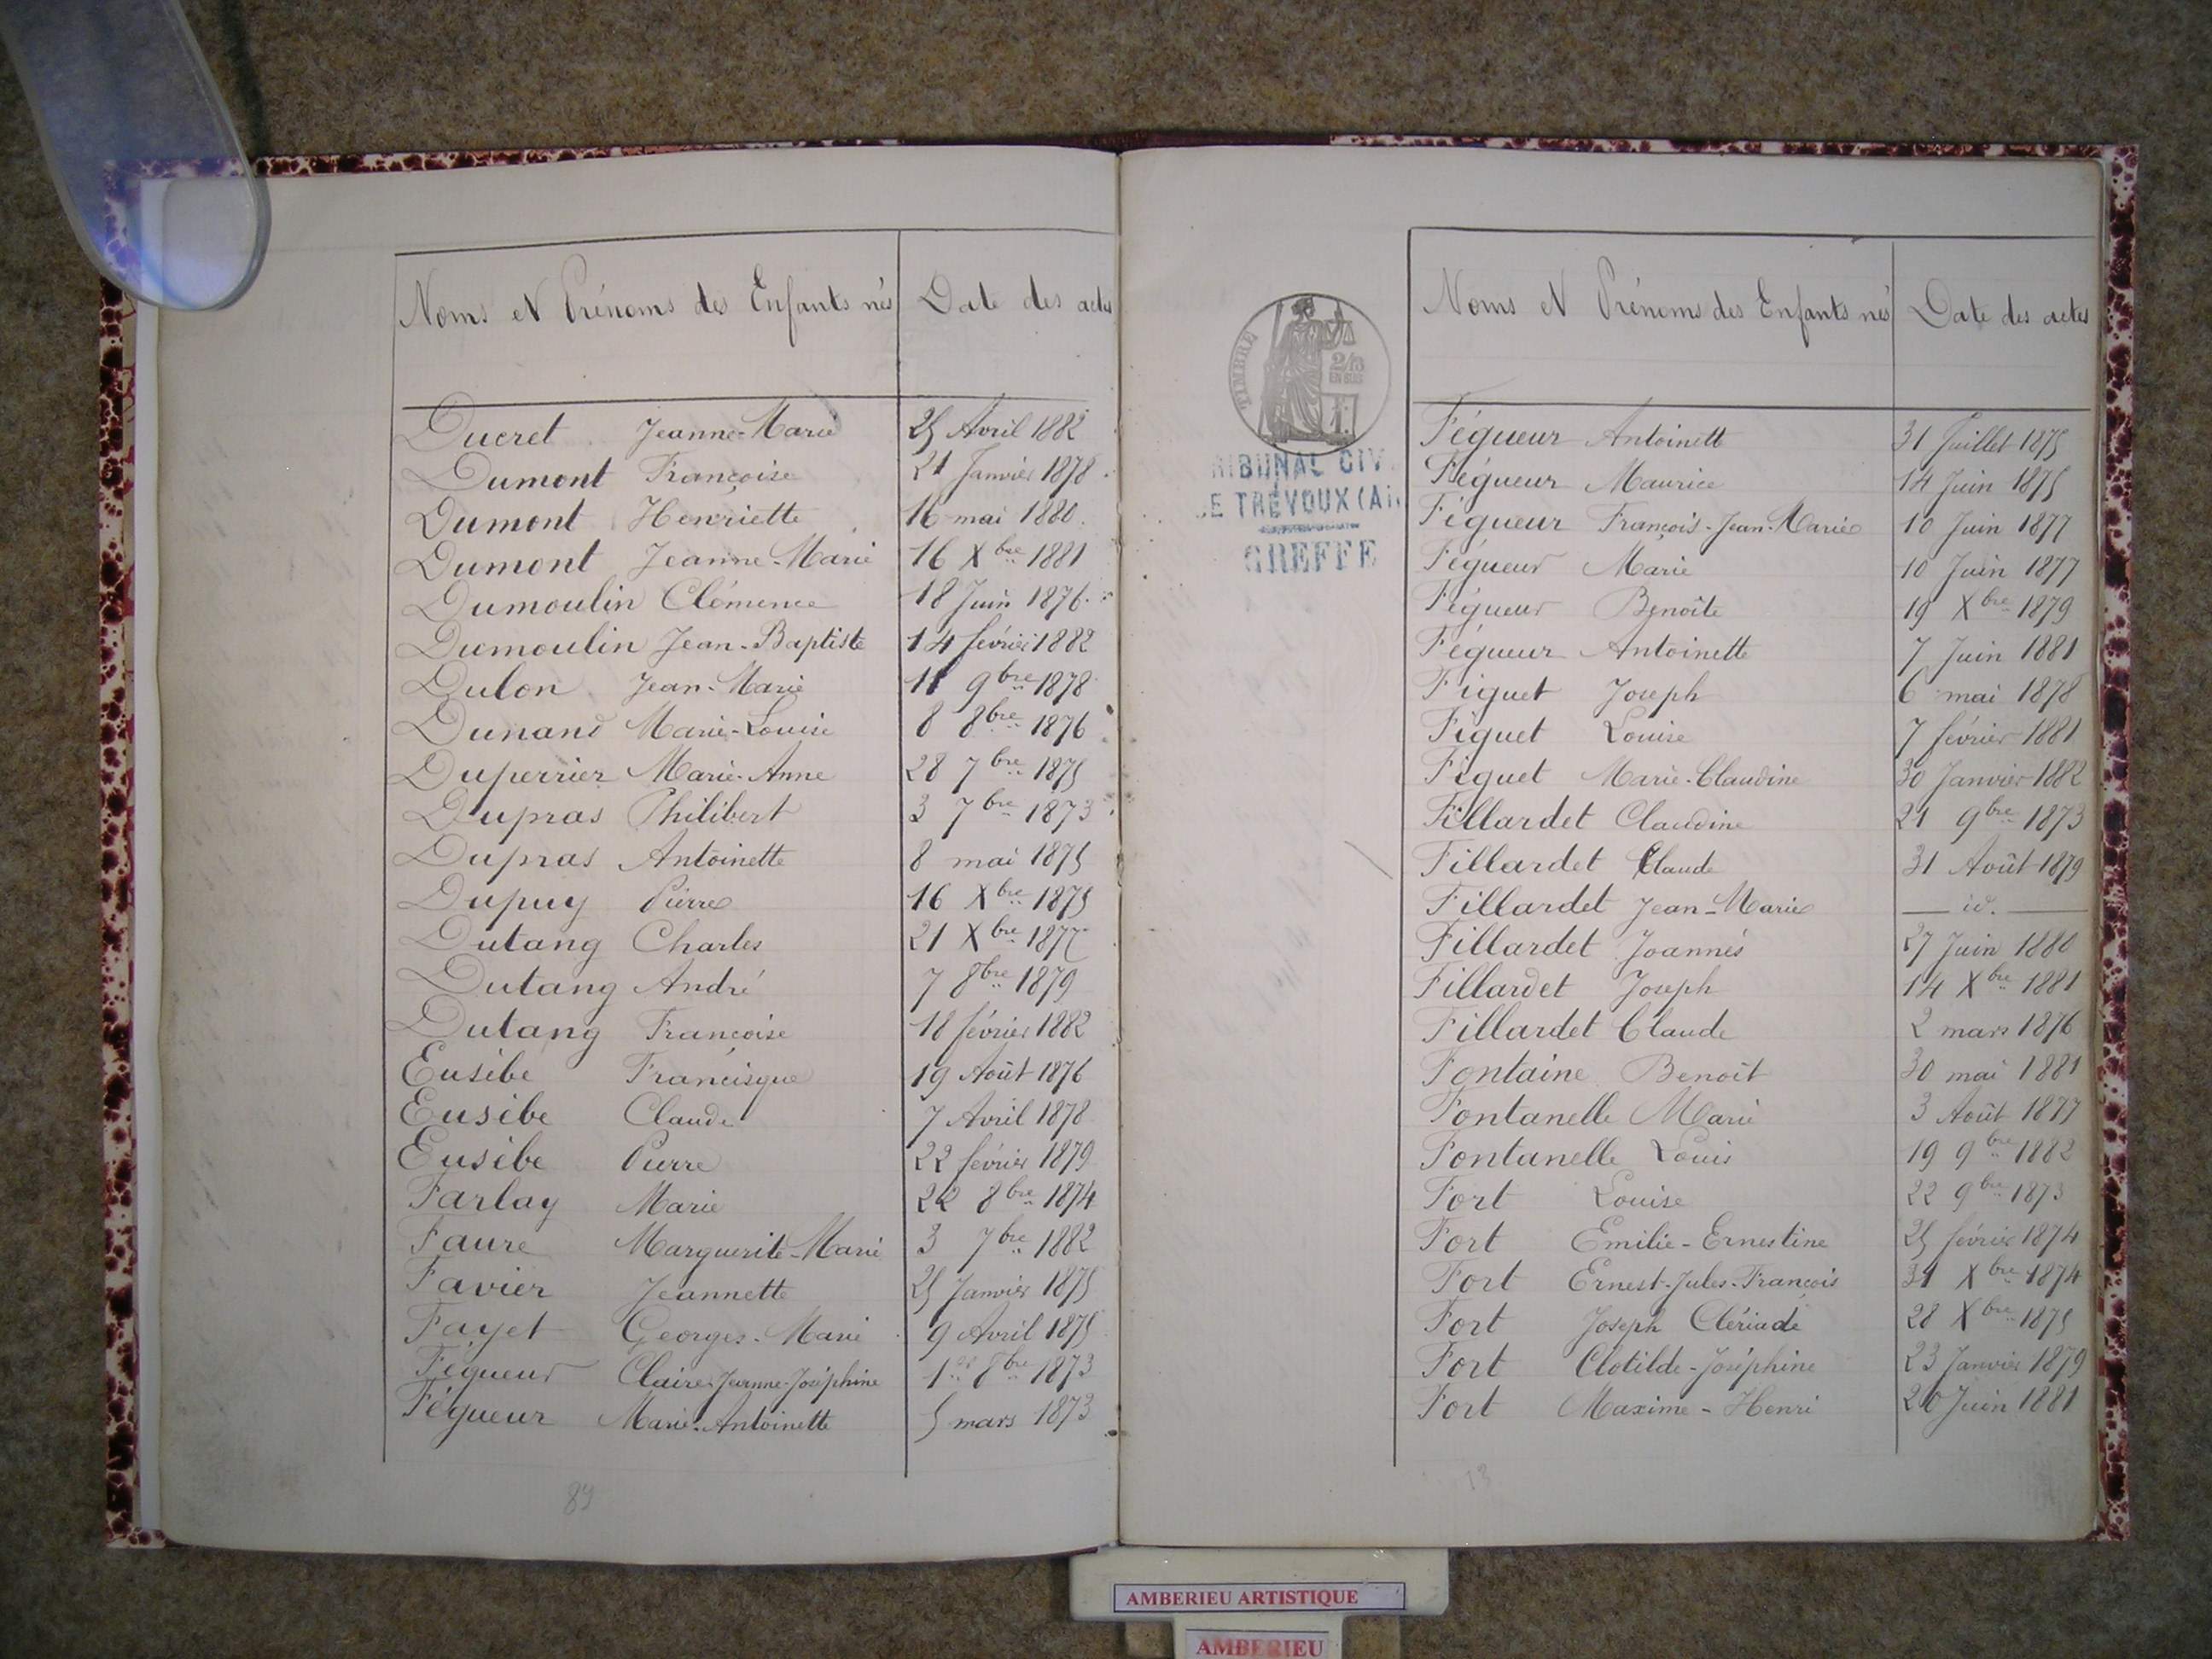 Noms et Prénoms des Enfants nés Date des actes
Ducret Jeanne-Marie 25 Avril 1882
Dumont Françoise 21 Janvier 1878
Dumont Henriette 16 mai 1880
Dumont Jeanne-Marie 16 Xbre 1881
Dumoulin Clémence 18 Juin 1876
Dumoulin Jean-Baptiste 14 février 1882
Dulon Jean-Marie 11 9bre 1878
Dunand Marie-Louise 8 8bre 1876
Duperrier Marie-Anne 28 7bre 1875
Dupras Philibert 3 7bre 1873
Dupras Antoinette 8 mai 1875
Dupuy Pierre 16 Xbre 1875
Dutang Charles 21 Xbre 1877
Dutang André 7 8bre 1879
Dutang Françoise 18 février 1882
Eusèbe Francisque 19 Août 1876
Eusèbe Claude 7 Avril 1878
Eusèbe Pierre 22 février 1879
Farlay Marie 22 8bre 1874
Faure Marguerite-Marie 3 7bre 1882
Favier Jeannette 25 Janvier 1875
Fayet Georges-Marie 9 Avril 1875
Fégueur Claire-Jeanne-Joséphine 1er 8bre 1873
Fégueur Marie-Antoinette 5 mars 1873
89
TIMBRE
2/10
EN SUS
RIBUNAL CIV
E TRÉVOUX (Ai
GREFFE
Noms et Prénoms des Enfants nés Date des actes
Fégueur Antoinett 31 Juillet 1875
Fégueur Maurice 14 Juin 1875
Fégueur François-Jean-Marie 10 Juin 1877
Fégueur Marie 10 Juin 1877
Fégueur Benoîte 19 Xbre 1879
Fégueur Antoinette 7 Juin 1881
Figuet Joseph 6 mai 1878
Figuet Louise 7 février 1881
Figuet Marie-Claudine 30 Janvier 1882
Fillardet Claudine 21 9bre 1873
Fillardet Claude 31 Août 1879
Fillardet Jean-Marie — id. —
Fillardet Joannès 27 Juin 1880
Fillardet Joseph 14 Xbre 1881
Fillardet Claude 2 mars 1876
Fontaine Benoît 30 mai 1881
Fontanelle Marie 3 Août 1877
Fontanelle Louis 19 9bre 1882
Fort Louise 22 9bre 1873
Fort Emilie-Ernestine 25 février 1874
Fort Ernest-Jules-François 31 Xbre 1874
Fort Joseph 28 Xbre 1875
Fort Clotilde-Joséphine 23 Janvier 1879
Fort Maxime-Henri 20 Juin 1881
13
AMBERIEU ARTISTIQUE
AMBERIEU